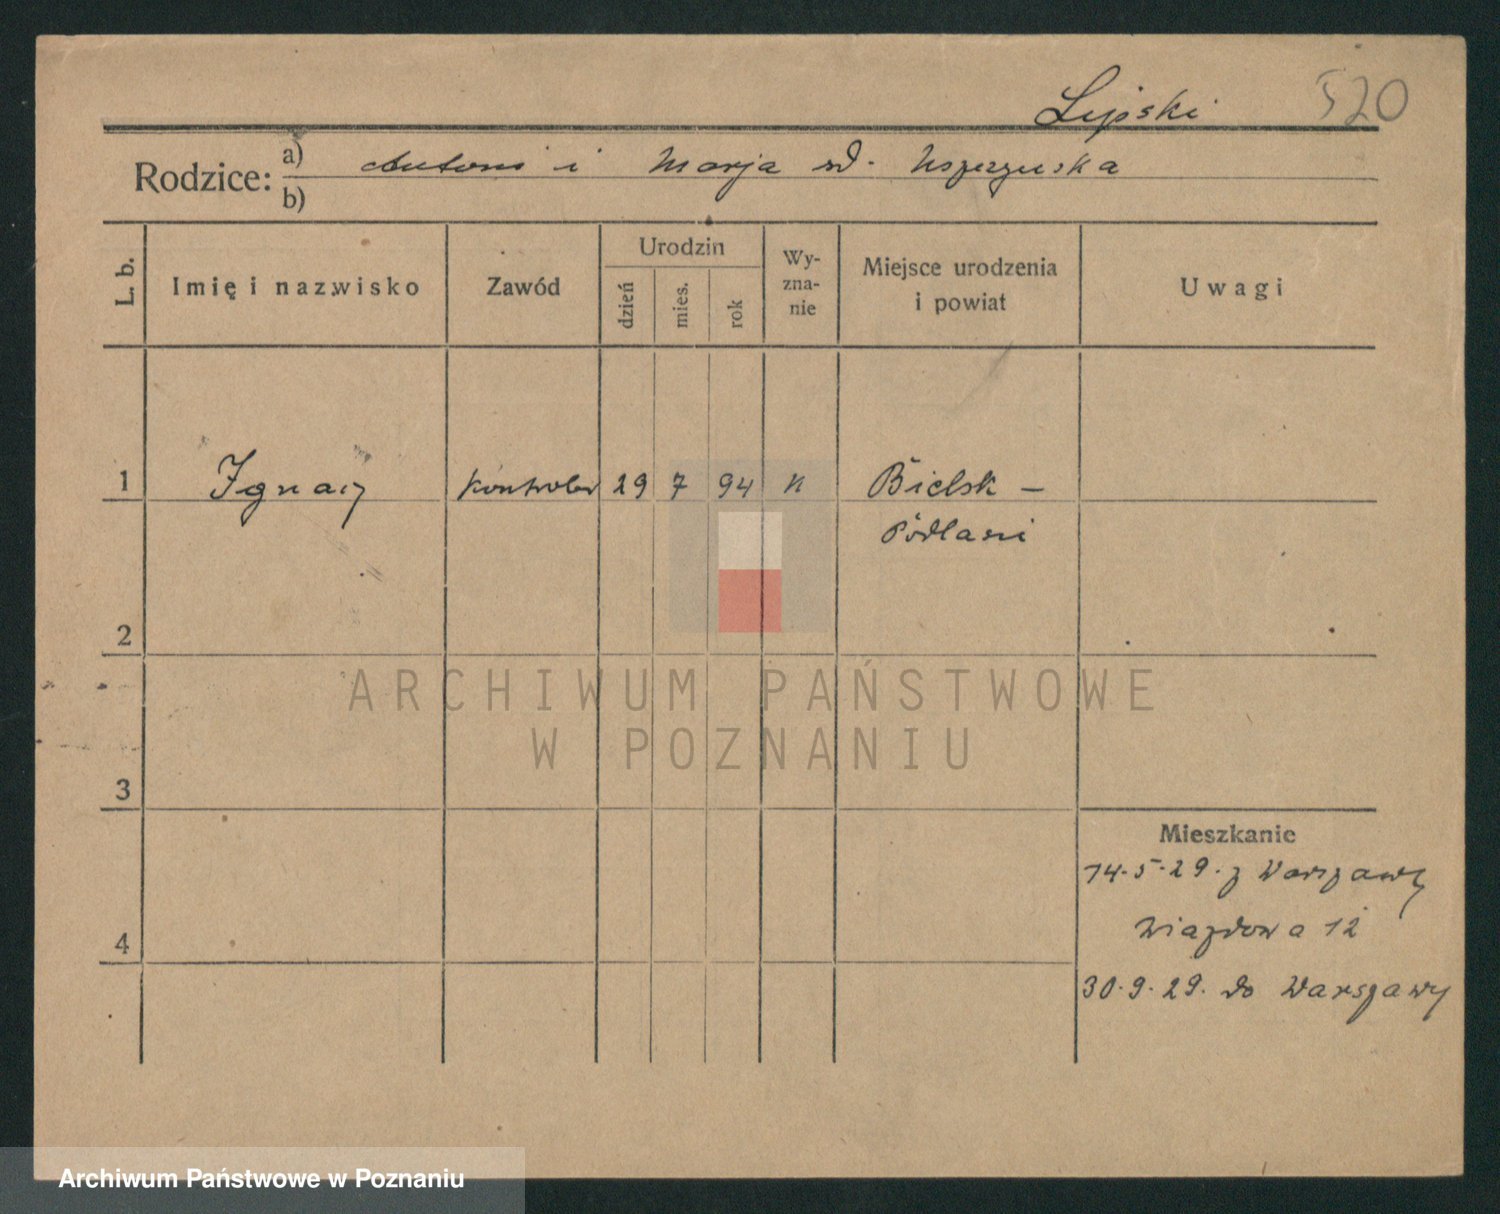 520
Lipski
Rodzice: a) Antoni i Marja zd.
b)
L. b.
Imię i nazwisko
Zawód
Urodzin
dzień
mies.
rok
Wy-
zna-
nie
Miejsce urodzenia
i powiat
Uwagi
1 Ignacy kontroler 29 7 94 k Bielsk –
Podlaski
2
3
4
Mieszkanie
14.5.29. z Warszawy
Wiazdowa 12
30.9.29. do Warszawy
ARCHIWUM PAŃSTWOWE
W POZNANIU
Archiwum Państwowe w Poznaniu